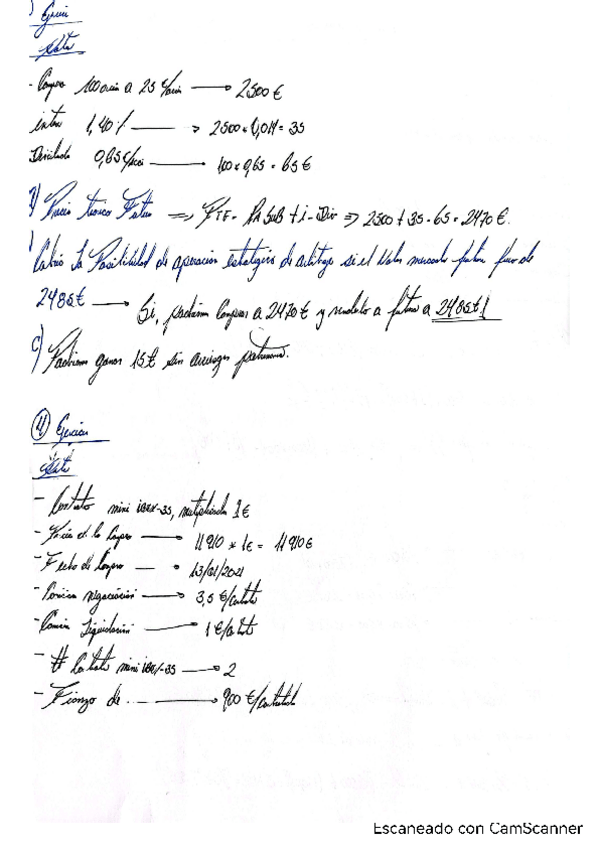 ) Ejercicio
Datos
- Compra 100 acción a 25 €/acción → 2500 €
interes 1,40% → 2500 * 0,014 = 35
Dividendo 0,65 €/acción → 100 * 0,65 = 65 €
Precio teorico Futuro => PTF = PA SUB + i - Div => 2500 + 35 - 65 = 2470 €.
la Posibilidad de operación estrategica de arbitraje si el Valor mercado futuro fuera de
2485€ → Si, podriamos Comprar a 2470 € y venderlo a futuro a 2485€!
C) Podriamos ganar 15€ sin arriesgar patrimonio.
④ Ejercicio
Datos
- Contrato mini IBEX-35, multiplicador 1€
- Precio de la Compra → 11910 * 1€ = 11910€
- Fecha de Compra → 13/01/2021
- Comision negociación → 3,5 €/contrato
- Comision Liquidación → 1 €/contrato
- # Contrato mini IBEX-35 → 2
- Fianza de ... → 900 €/contrato
Escaneado con CamScanner